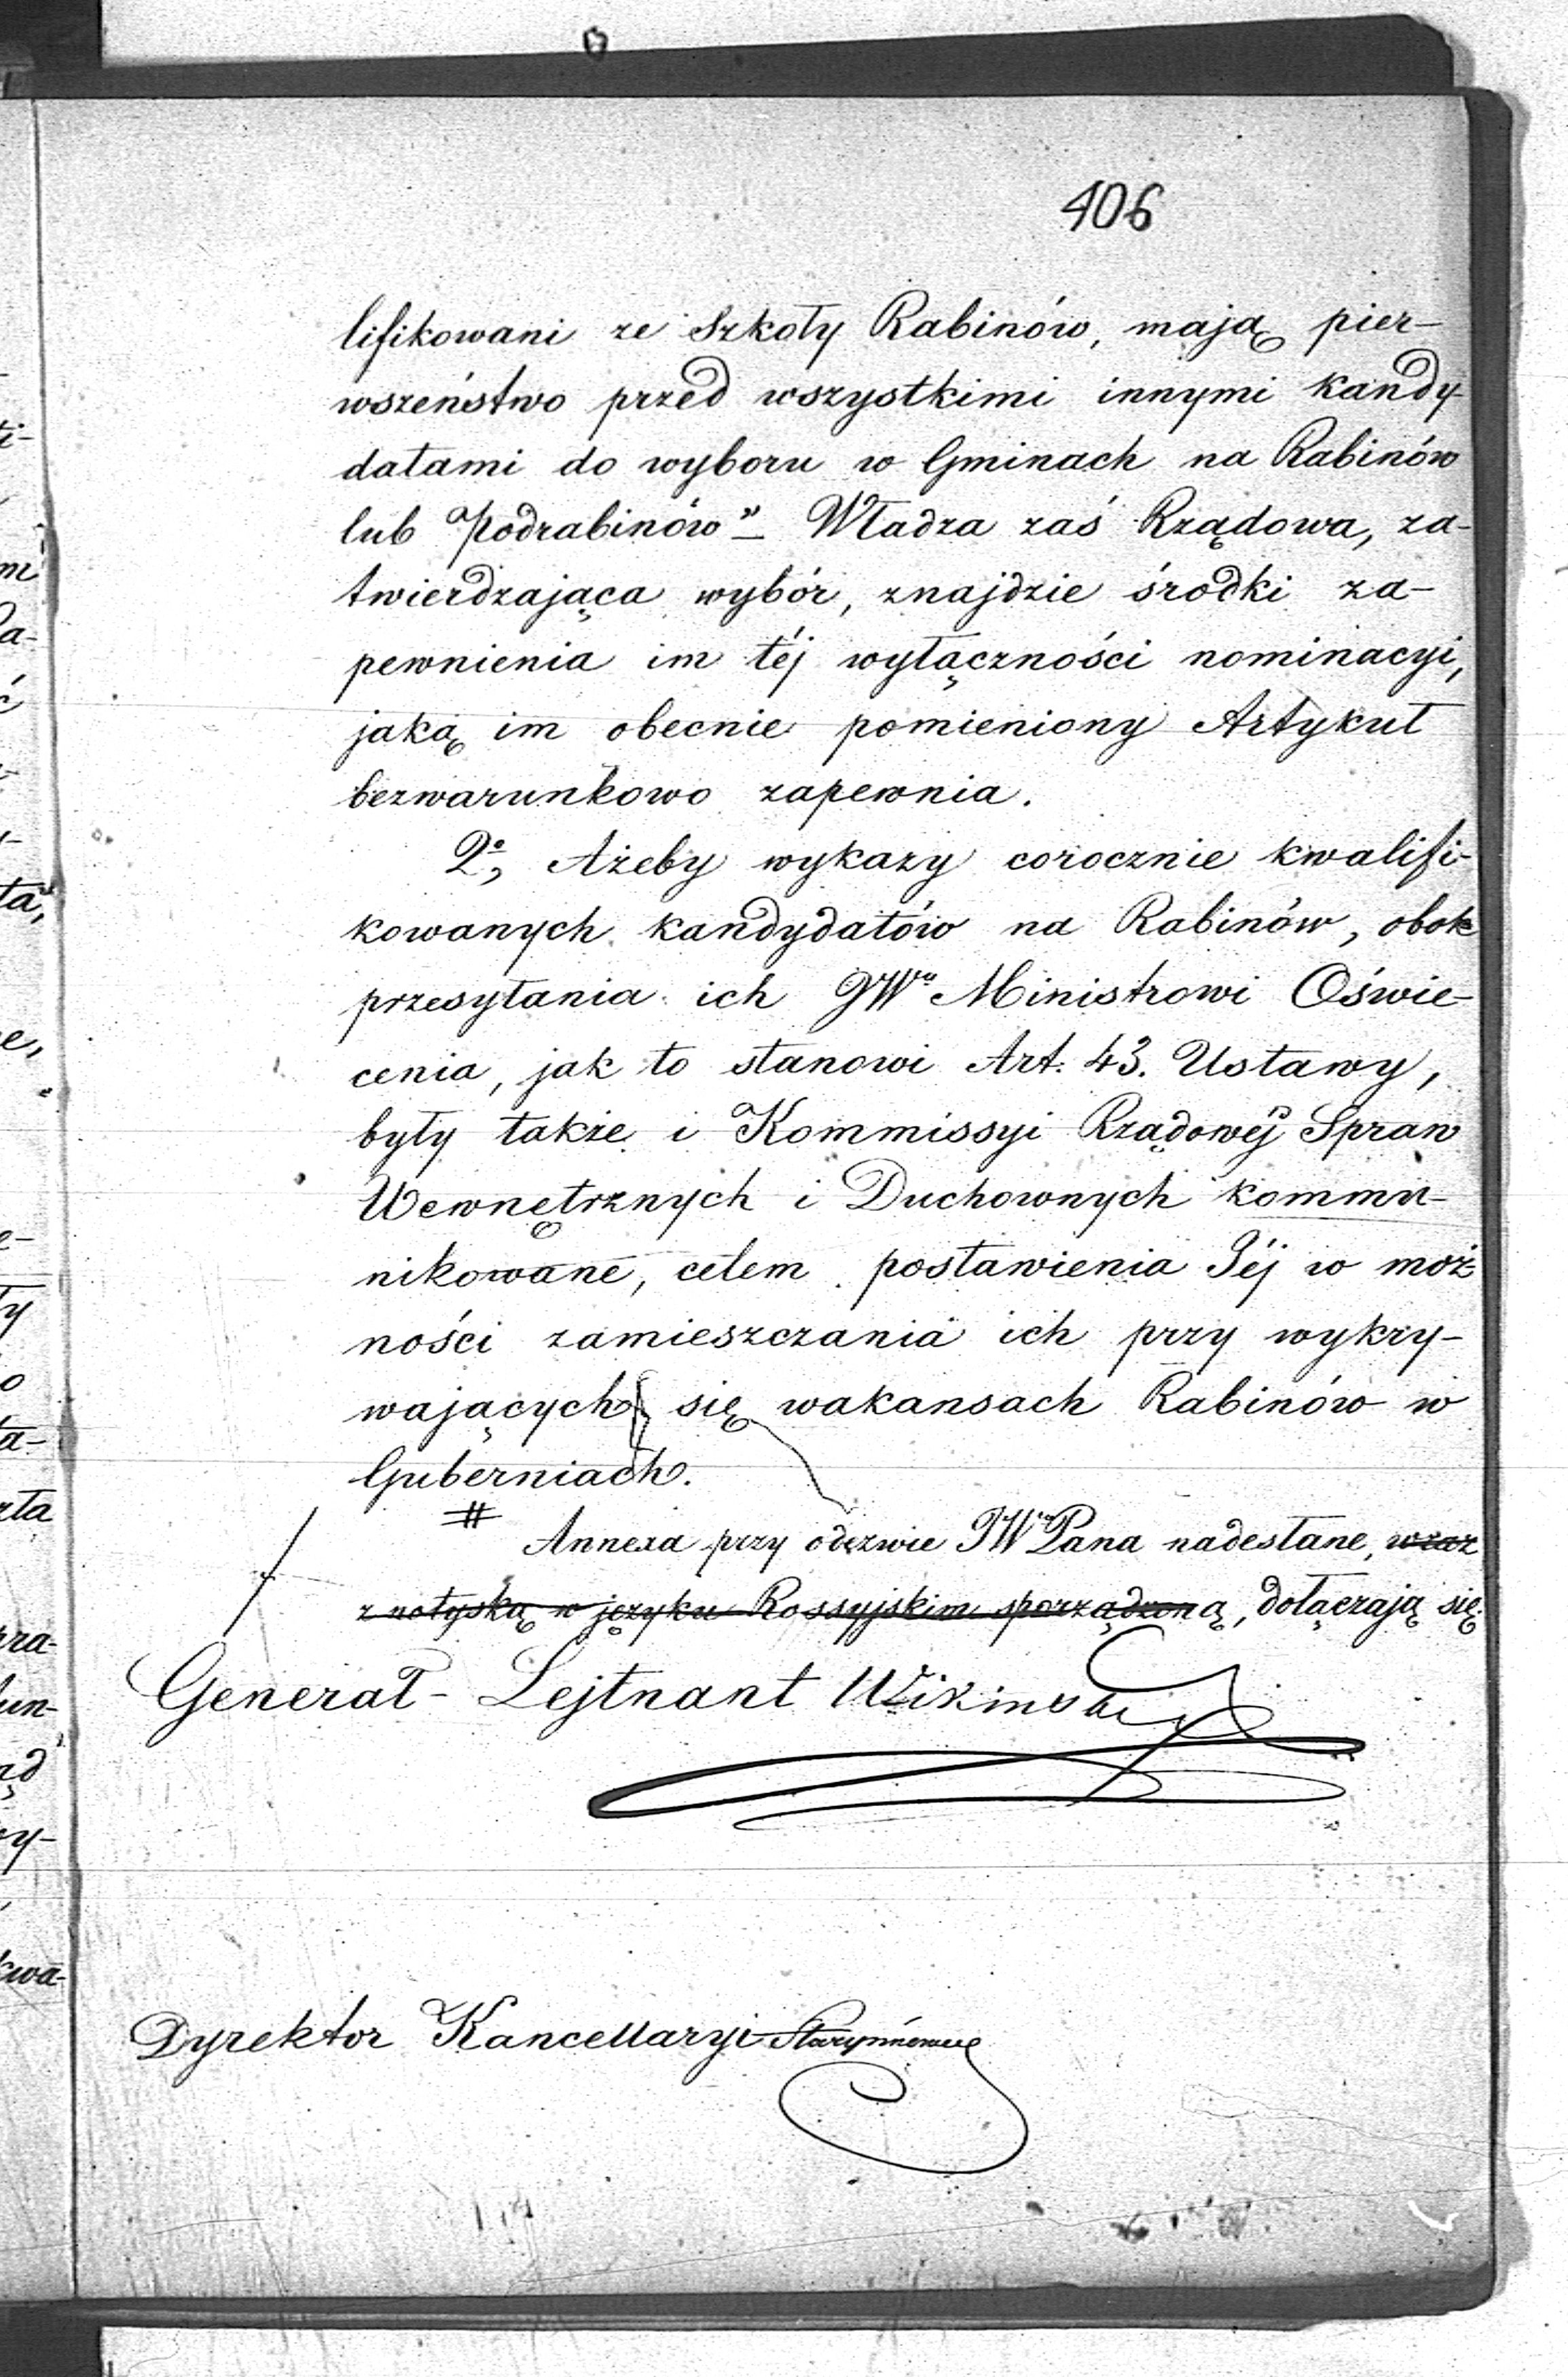 406
lifikowani ze Szkoły Rabinów, mają pier-
wszeństwo przed wszystkimi innymi kandy-
datami do wyboru w Gminach na Rabinów
lub Podrabinów" – Władza zaś Rządowa, za-
twierdzająca wybór, znajdzie środki za-
pewnienia im téj wyłączności nominacyi,
jaką im obecnie pomieniony Artykuł
bezwarunkowo zapewnia.
2º, Ażeby wykazy corocznie kwalifi-
kowanych kandydatów na Rabinów, obok
przesyłania ich JWu Ministrowi Oświe-
cenia, jak to stanowi Art. 43. Ustawy,
były także i Kommissyi Rządowéj Spraw
Wewnętrznych i Duchownych kommu-
nikowane, celem postawienia Jéj w moż
ności zamieszczania ich przy wykry-
wających się wakansach Rabinów w
Guberniach.
# Annexa przy odezwie JW Pana nadesłane, wraz
z notyską w języku Rossyjskim sporządzoną, dołączają się.
Generał-Lejtnant
Dyrektor Kancellaryi